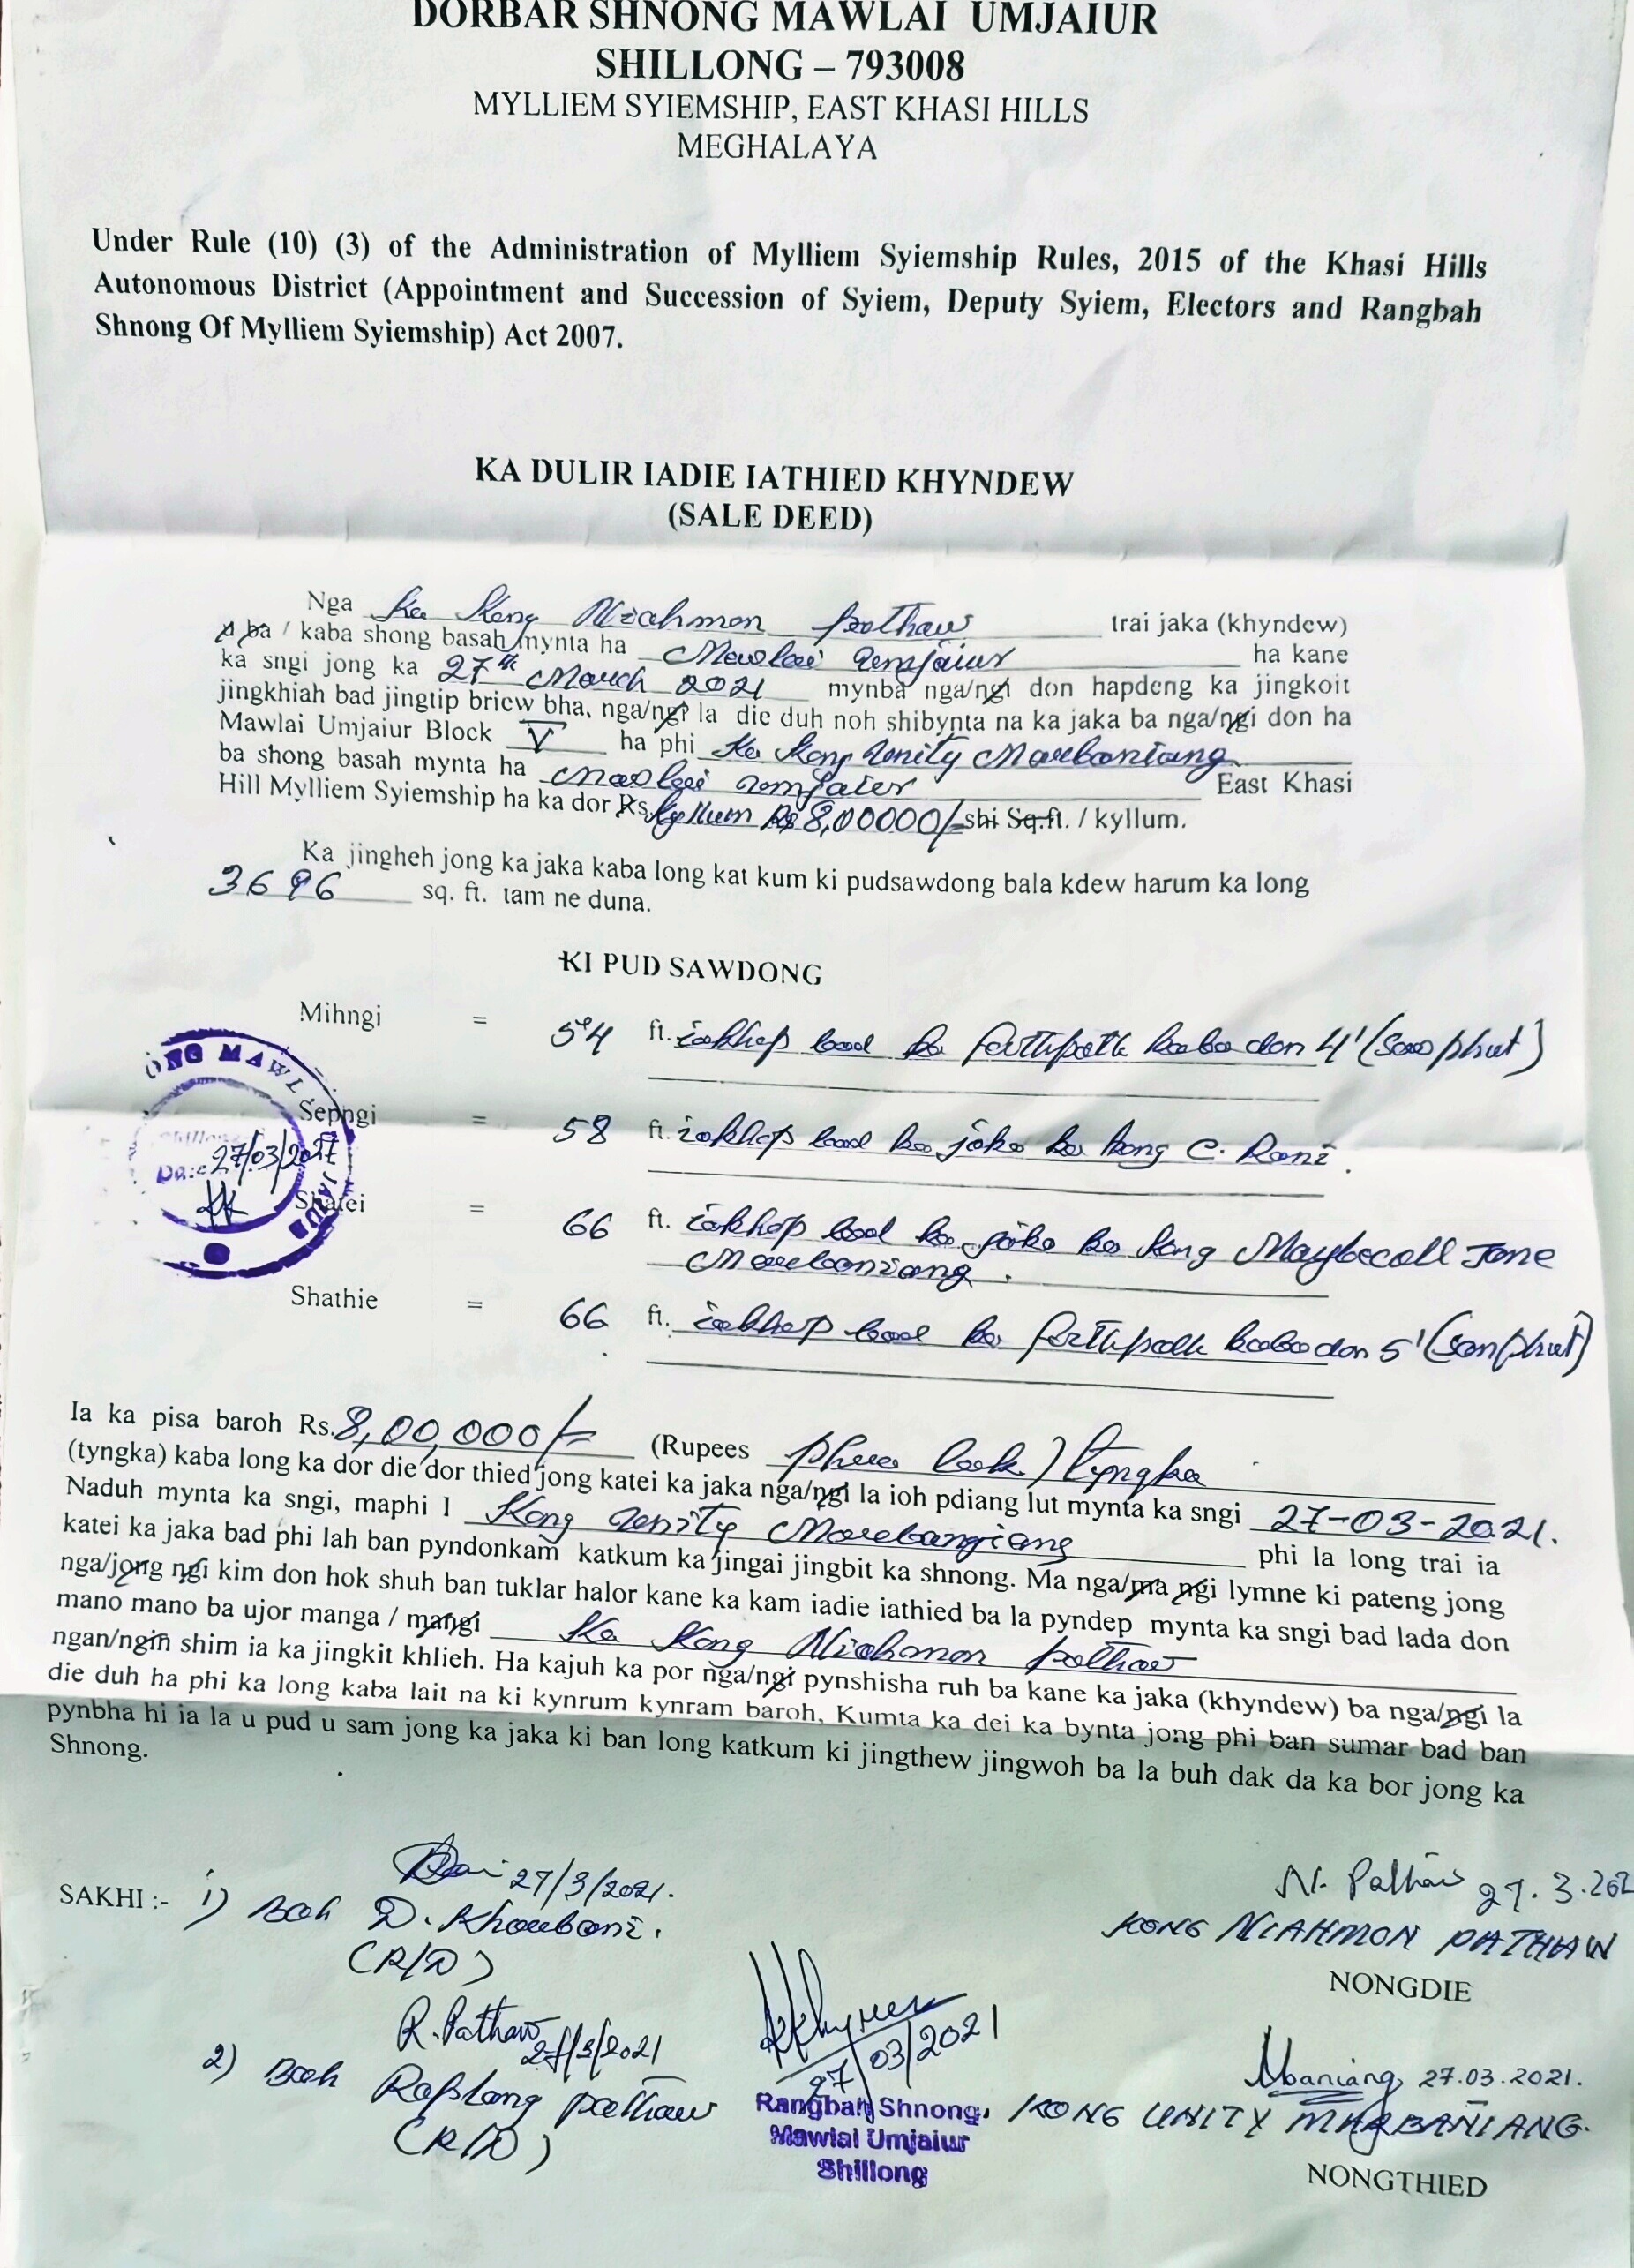 DORBAR SHNONG MAWLAI UMJAIUR
SHILLONG – 793008
MYLLIEM SYIEMSHIP, EAST KHASI HILLS
MEGHALAYA
Under Rule (10) (3) of the Administration of Mylliem Syiemship Rules, 2015 of the Khasi Hills
Autonomous District (Appointment and Succession of Syiem, Deputy Syiem, Electors and Rangbah
Shnong Of Mylliem Syiemship) Act 2007.
KA DULIR IADIE IATHIED KHYNDEW
(SALE DEED)
Nga Ka Kong Niahmon pathaw trai jaka (khyndew)
ba / kaba shong basah mynta ha Mawlai Umjaiur ha kane
ka sngi jong ka 27th March 2021 mynba nga/ngi don hapdeng ka jingkoit
jingkhiah bad jingtip briew bha, nga/ngi la die duh noh shibynta na ka jaka ba nga/ngi don ha
Mawlai Umjaiur Block V ha phi Ka Kong Unity Marbaniang
ba shong basah mynta ha Mawlai Umjaiur East Khasi
Hill Mylliem Syiemship ha ka dor Rs Kyllum Rs 8,00000/= shi Sq.ft. / kyllum.
Ka jingheh jong ka jaka kaba long kat kum ki pudsawdong bala kdew harum ka long
3696 sq. ft. tam ne duna.
KI PUD SAWDONG
Mihngi = 54 ft. iakhap bad ka futhpath kaba don 4' (Saw phut)
Sepngi = 58 ft. iakhap bad ka jaka ka kong C. Rani.
Shatei = 66 ft. iakhap bad ka jaka ka kong Maybecall Jane
Marbaniang.
Shathie = 66 ft. iakhap bad ka futhpath kaba don 5' (San phut)
ONG MAWL
Date 27/03/2021
Ia ka pisa baroh Rs. 8,00,000/= (Rupees phra lak) tyngka
(tyngka) kaba long ka dor die dor thied jong katei ka jaka nga/ngi la ioh pdiang lut mynta ka sngi 27-03-2021.
Naduh mynta ka sngi, maphi I Kong Unity Marbaniang phi la long trai ia
katei ka jaka bad phi lah ban pyndonkam katkum ka jingai jingbit ka shnong. Ma nga/ma ngi lymne ki pateng jong
nga/jong ngi kim don hok shuh ban tuklar halor kane ka kam iadie iathied ba la pyndep mynta ka sngi bad lada don
mano mano ba ujor manga / mangi Ka Kong Niahmon pathaw
ngan/ngin shim ia ka jingkit khlieh. Ha kajuh ka por nga/ngi pynshisha ruh ba kane ka jaka (khyndew) ba nga/ngi la
die duh ha phi ka long kaba lait na ki kynrum kynram baroh, Kumta ka dei ka bynta jong phi ban sumar bad ban
pynbha hi ia la u pud u sam jong ka jaka ki ban long katkum ki jingthew jingwoh ba la buh dak da ka bor jong ka
Shnong.
27/3/2021.
SAKHI :- 1) Bah D. Kharbani.
(R/D)
R. Pathaw
27/3/2021
2) Bah Rapslang pathaw
(R/D)
27/03/2021
Rangbah Shnong,
Mawlai Umjaiur
Shillong
N. Pathaw 27.3.202
KONG NIAHMON PATHAW
NONGDIE
Mbaniang 27.03.2021.
KONG UNITY MARBANIANG.
NONGTHIED